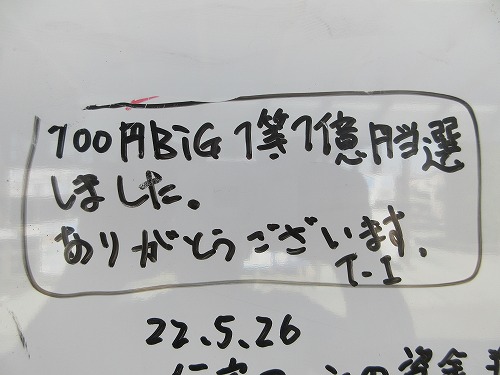 100円BiG 1等1億円当選
しました。
ありがとうございます.
T-I
22.5.26